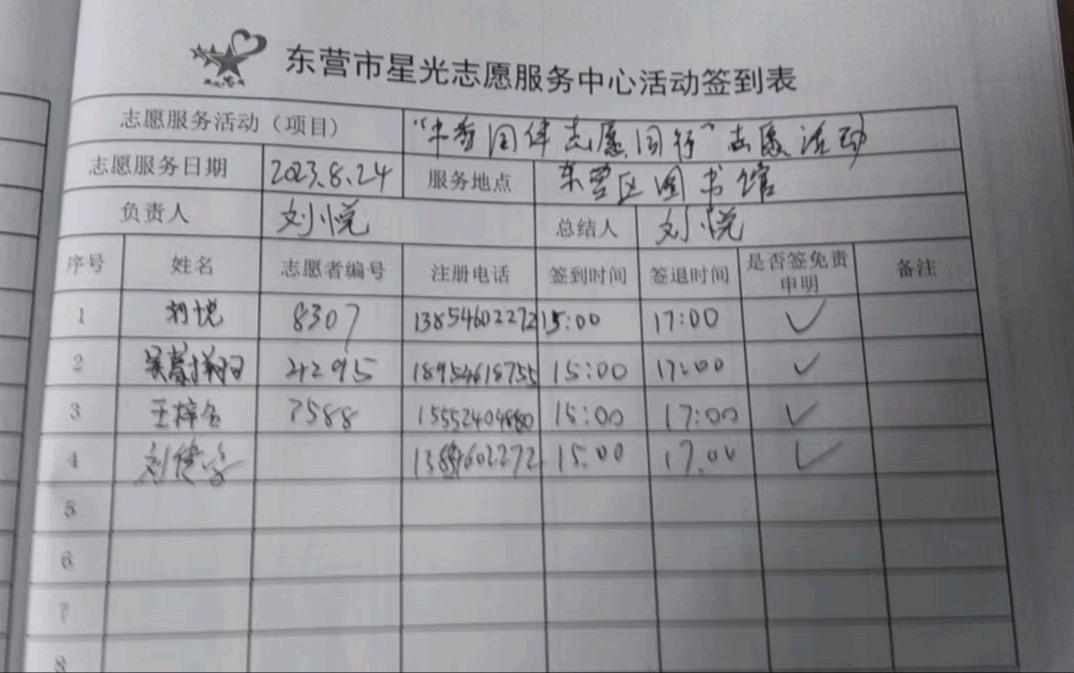 东营市星光志愿服务中心活动签到表
志愿服务活动（项目） "书香团伴志愿同行"志愿活动
志愿服务日期 2023.8.24 服务地点 东营区图书馆
负责人 刘悦 总结人 刘悦
序号 姓名 志愿者编号 注册电话 签到时间 签退时间 是否签免责申明 备注
1 刘悦 8307 13854602272 15:00 17:00 ✓
2 42295 18954618755 15:00 17:00 ✓
3 王梓 7588 15552404880 15:00 17:00 ✓
4 刘 602272 15.00 17.00 ✓
5
6
7
8